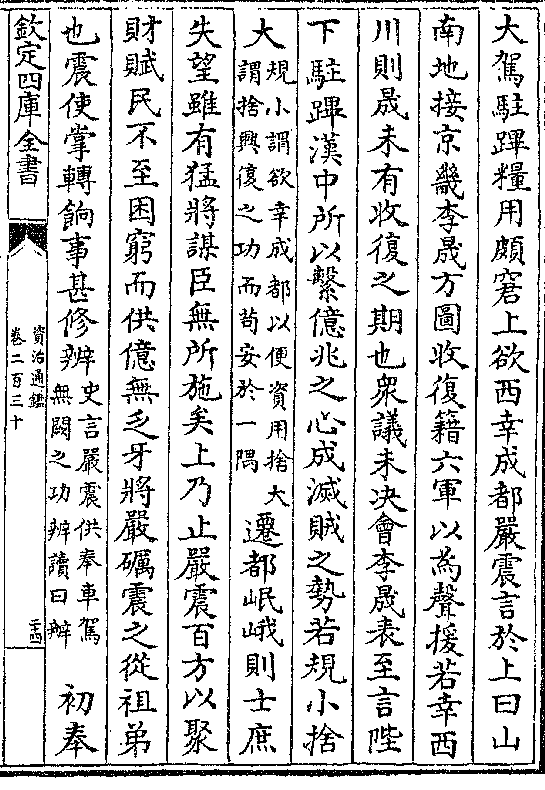 大駕駐蹕糧用頗窘上欲西幸成都嚴震言於上曰山
南地接京畿李晟方圖收復籍六軍以為聲援若幸西
川則晟未有收復之期也衆議未决會李晟表至言陛
下駐蹕漢中所以繫億兆之心成滅賊之勢若規小捨
大規小謂欲幸成都以便資用捨大
謂捨興復之功而苟安於一隅遷都岷峨則士庶
失望雖有猛將謀臣無所施矣上乃止嚴震百方以聚
財賦民不至困窮而供億無乏牙將嚴礪震之從祖弟
也震使掌轉餉事甚修辦史言嚴震供奉車駕
無闕之功辦讀曰辦初奉
欽定四庫全書
資治通鑑
卷二百三十
二十四